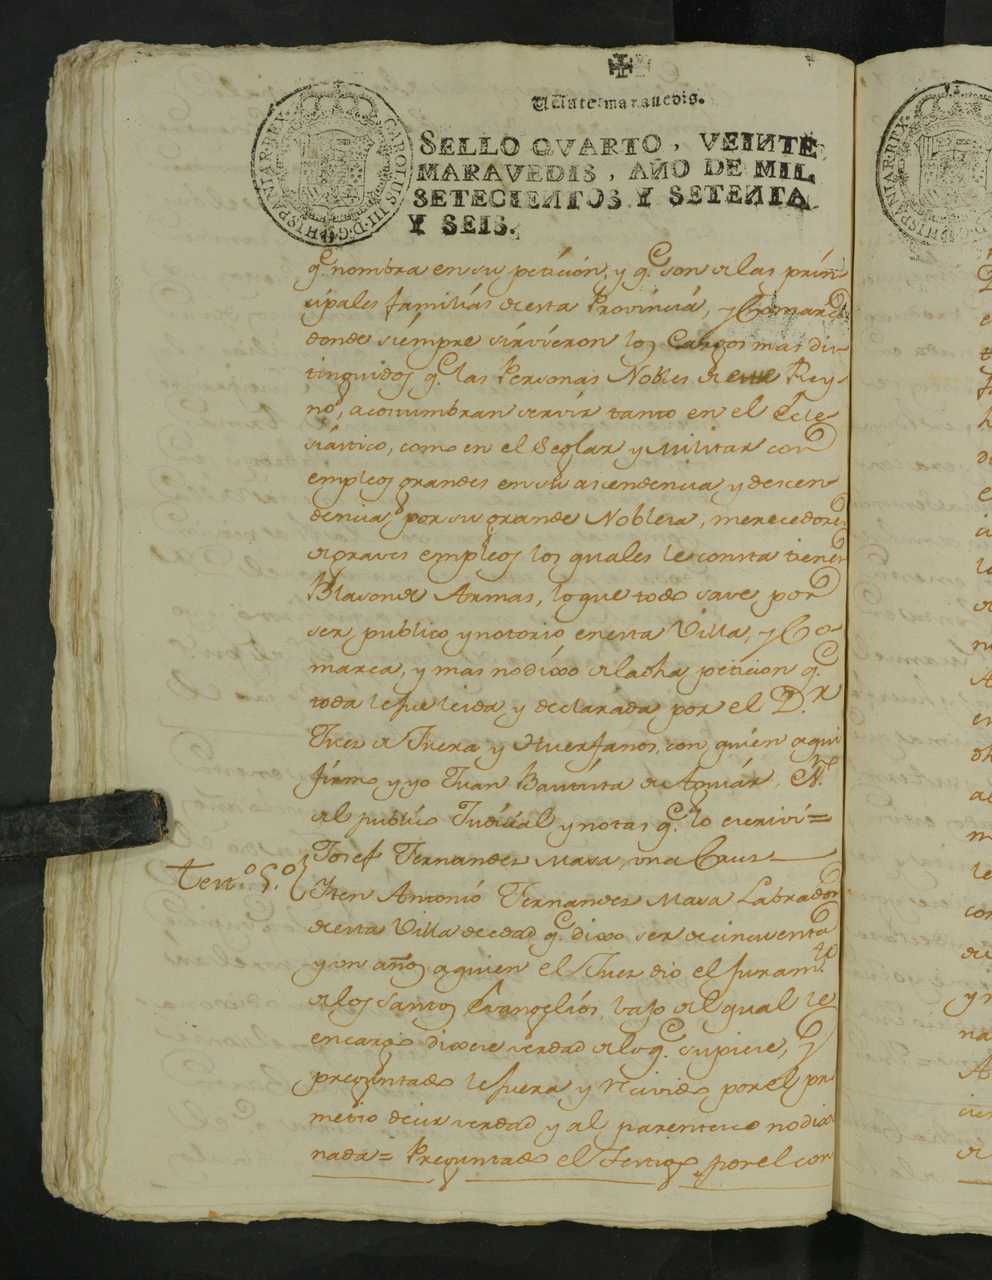 Veinte maravedis.
SELLO QVARTO, VEINTE
MARAVEDIS, AÑO DE MIL
SETECIENTOS Y SETENTA
Y SEIS.
CAROLUS III D G HISPANIAR REX
q.e nombra en su petición, y q.e son de las prin-
cipales familias de esta Provincia, y Comarca
donde siempre sirvieron los Cargos mas dis-
tinguidos q.e las Personas Nobles de este Rey-
no, acostumbran servir tanto en el Ecle-
siástico, como en el Seglar y Militar con
empleos grandes en su ascendencia y descen-
dencia por su grande Nobleza, merecedores
de graves empleos los quales le consta tienen
Blason de Armas, lo que todo save por
ser publico y notorio en esta Villa, y Co-
marca, y mas no dixo de la dha peticion q.e
toda le fue leida y declarada por el D.r
Juez de Fuera y Huerfanos, con quien aqui
firmo, y yo Juan Bautista de Aguiar
del publico Judicial y notas q.e lo escrivi=
Josef Fernandes Mava, una Cruz
Test.o 5.o
Iten Antonio Fernandes Mava Labrador
de esta Villa de edad q.e dixo ser de cincuenta
y un años a quien el Juez dio el juram.to
de los Santos Evangelios, bajo del qual le
encargó dixese verdad de lo q.e supiese, y
preguntado le fuera y recivido por el pro-
metio decir verdad y al parentesco no dixo
nada= Preguntado el Testigo por el con